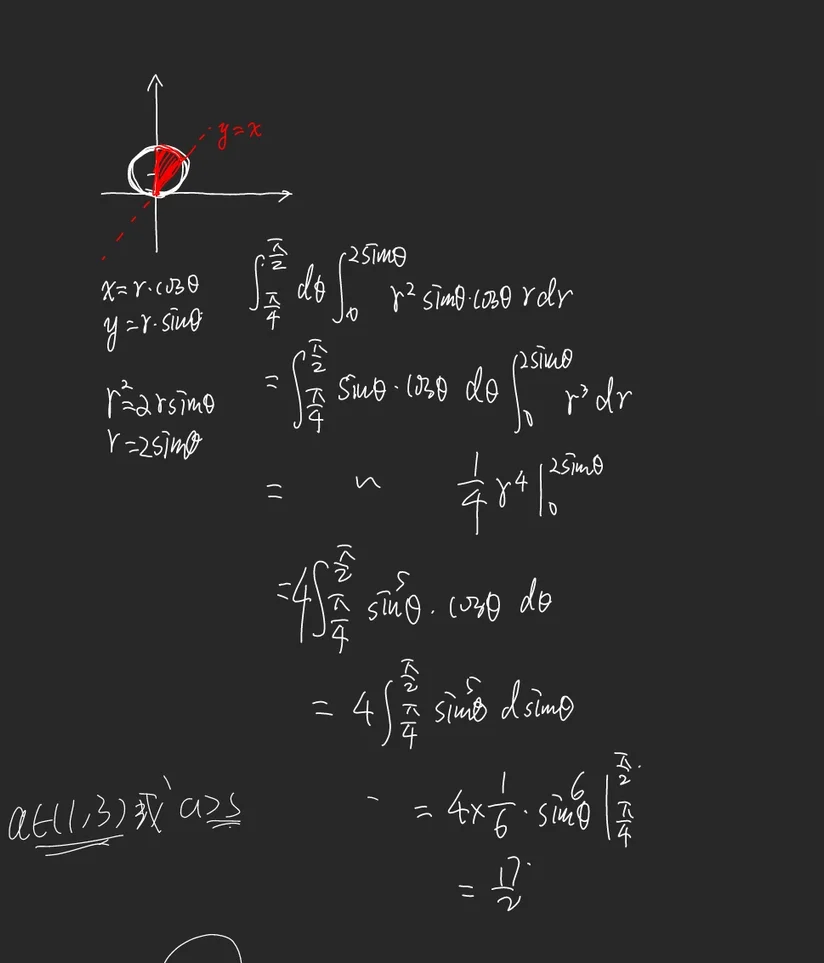 y=x
x=r·cosθ
y=r·sinθ
r²=2rsinθ
r=2sinθ
∫_{π/4}^{π/2} dθ ∫_0^{2sinθ} r² sinθ·cosθ rdr
= ∫_{π/4}^{π/2} sinθ·cosθ dθ ∫_0^{2sinθ} r³ dr
= ~ 1/4 r⁴ |_0^{2sinθ}
=4∫_{π/4}^{π/2} sin⁵θ·cosθ dθ
= 4∫_{π/4}^{π/2} sin⁵θ dsinθ
= 4×1/6·sin⁶θ |_{π/4}^{π/2}
= 17/2
a∈(1,3)或a≥5